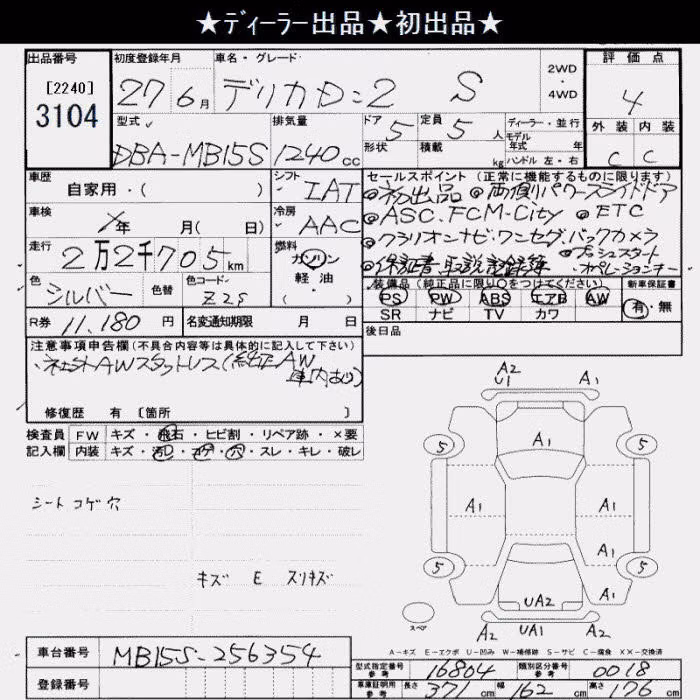 ★ディーラー出品★初出品★
出品番号
[2240]
3104
初度登録年月
27年 6月
車名・グレード
デリカD:2 S
2WD
・
4WD
評価点
4
外装 内装
C C
型式
DBA-MB15S
排気量
1240cc
ドア
5
形状
定員
5人
積載
kg
ディーラー・並行
モデル
年式 年
ハンドル 左・右
車歴
自家用・( )
シフト
IAT
車検
年 月( 日)
冷房
AAC
走行
2万2千705km
燃料
ガソリン
軽油
・( )
色
シルバー
色替
色コード
Z2S
R券 11,180円
名変通知期限 月 日
セールスポイント (正常に機能するものに限ります)
◎初出品 ◎両側パワースライドドア
◎ASC.FCM-City ◎ETC
◎クラリオンナビ.ワンセグ.バックカメラ
◎保証書・取説・記録簿 ・プッシュスタート
・オペレーションキー
装備品(純正品に限り○をつけてください)
PS PW ABS エアB AW
SR ナビ TV カワ
新車保証書
有・無
後日品
注意事項申告欄(不具合内容等は具体的に記入して下さい)
・社外AWスタットレス(純正AW
車内あり)
修復歴 有 〔箇所 〕
検査員 FW キズ・飛石・ヒビ割・リペア跡・×要
記入欄 内装 キズ・汚レ・コゲ・穴・スレ・キレ・破レ
シート コゲ穴
キズ E スリキズ
A2
U1
A1
A1
5
5
A1
A1
A1
5
5
A1
UA2
A2
UA1
A2
スペア
A-キズ E-エクボ U-凹み W-補修跡 S-サビ C-腐食 XX-交換済
車台番号
MB15S-256354
登録番号
型式指定番号
参考
16804
類別区分番号
参考
0018
車庫証明用
参考
長さ 371cm 幅 162cm 高さ 176cm